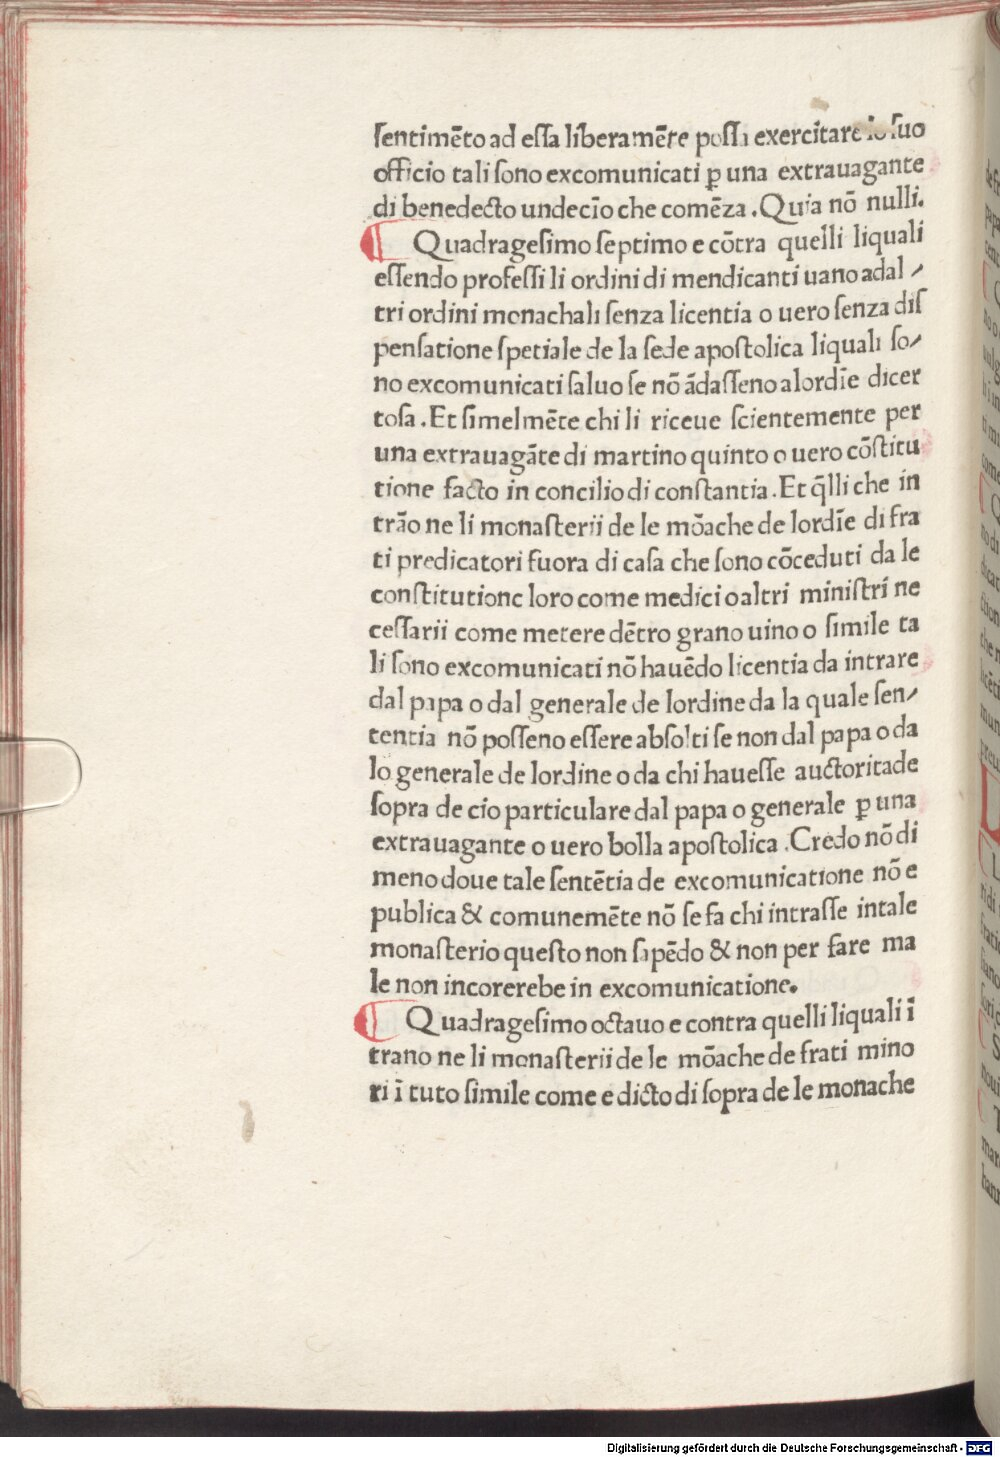 ſentimēto ad eſſa liberamēte poſſa exercitare lo ſuo
officio tali ſono excomunicati ꝑ una extrauagante
di benedecto undecīo che comēza . Quia nō nulli.
¶ Quadrageſimo ſeptimo e cōtra quelli liquali
eſſendo profeſſi li ordini di mendicanti uano adal ⸝
tri ordini monachali ſenza licentia o uero ſenza diſ
penſatione ſpetiale de la ſede apoſtolica liquali ſo⸝
no excomunicati ſaluo ſe nō ādaſſeno alordīe dicer
toſa . Et ſimelmēte chi li riceue ſcientemente per
una extrauagāte di martino quinto o uero cōſtitu
tione facto in concilio di conſtantia . Et q̄lli che in
trāo ne li monaſterii de le mōache de lordīe di fra
ti predicatori fuora di caſa che ſono cōceduti da le
conſtitutione loro come medici o altri miniſtri ne
ceſſarii come metere dētro grano uino o ſimile ta
li ſono excomunicati nō hauēdo licentia da intrare
dal papa o dal generale de lordine da la quale ſen⸝
tentia nō poſſeno eſſere abſolti ſe non dal papa o da
lo generale de lordine o da chi haueſſe auctoritade
ſopra de cio particulare dal papa o generale ꝑ una
extrauagante o uero bolla apoſtolica . Credo nō di
meno doue tale ſentētia de excomunicatione nō e
publica & comunemēte nō ſe fa chi intraſſe intale
monaſterio queſto non ſapēdo & non per fare ma
le non incorerebe in excomunicatione.
¶ Quadrageſimo octauo e contra quelli liquali ī
trano ne li monaſterii de le mōache de frati mino
ri ī tuto ſimile come e dicto di ſopra de le monache
Digitalisierung gefördert durch die Deutsche Forschungsgemeinschaft - DFG